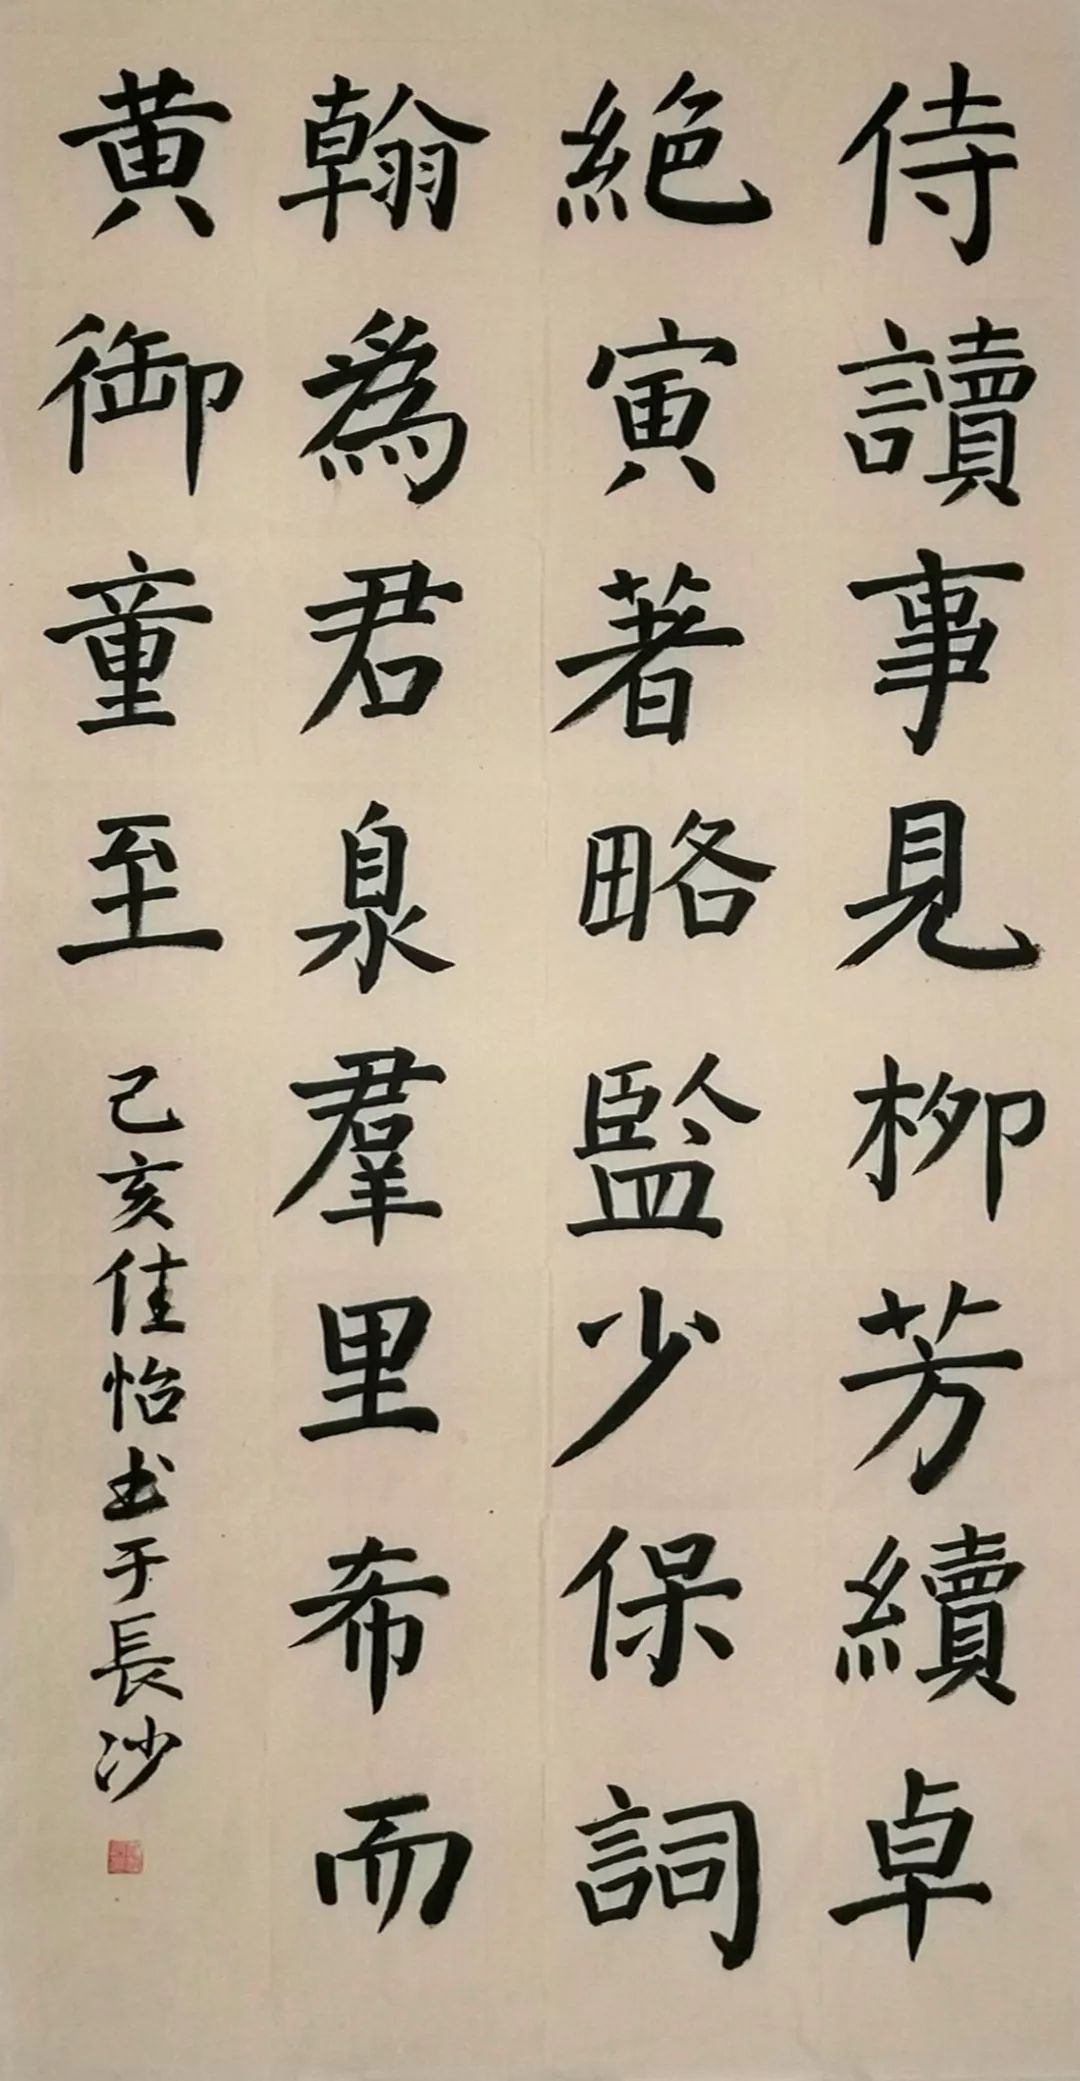 侍讀事見柳芳續卓
絕寅著略監少保詞
翰爲君泉羣里希而
黄御童至
己亥佳怡书于長沙